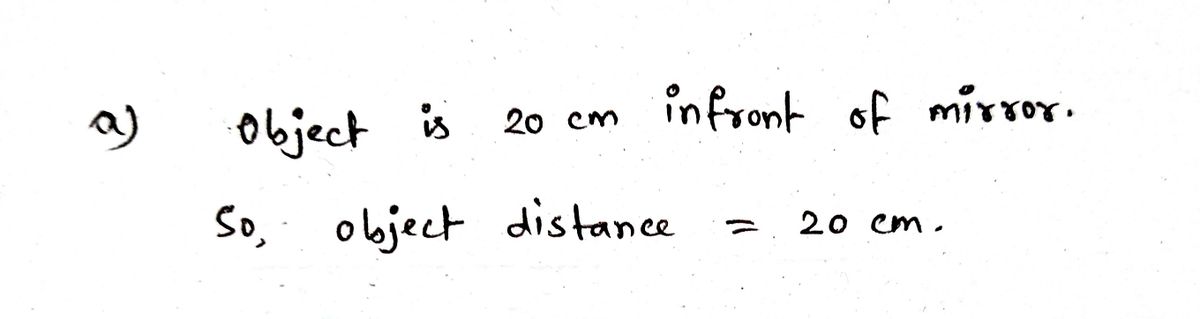 a) Object is 20 cm infront of mirror.
So, object distance = 20 cm.